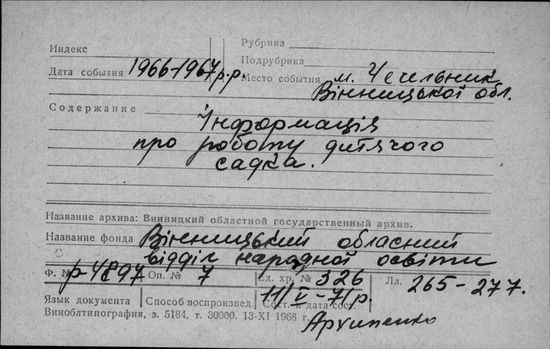 Индекс Рубрика
Подрубрика
Дата события 1966-1967 р.р. Место события м. Чечельник
Вінницької обл.
Содержание Інформація
про роботу дитячого
садка.
Название архива: Винницкий областной государственный архив.
Название фонда Вінницький обласний
відділ народної освіти
Ф. № р-4897 Оп. № 7 Ед. хр. № 326 Лл. 265-277.
Язык документа Способ воспроизвед. Сост. и дата сост.
11/V-71р.
Виноблтипография, з. 5184, т. 30000. 13-XI 1968 г. Архипенко